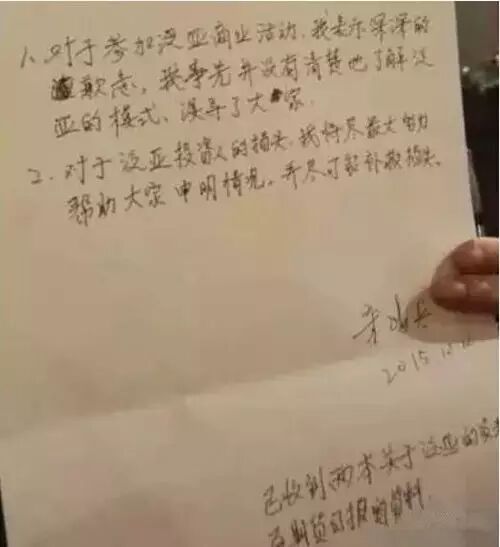 1、对于参加泛亚商业活动,我表示深深的
歉意。我事先并没有清楚地了解泛
亚的模式、误导了大家.
2、对于泛亚投资人的损失,我将尽最大的力
帮助大家申明情况,并尽可能补救损失.
宋鸿兵
2015.12.
已收到两本关于泛亚的
期货日报的资料.